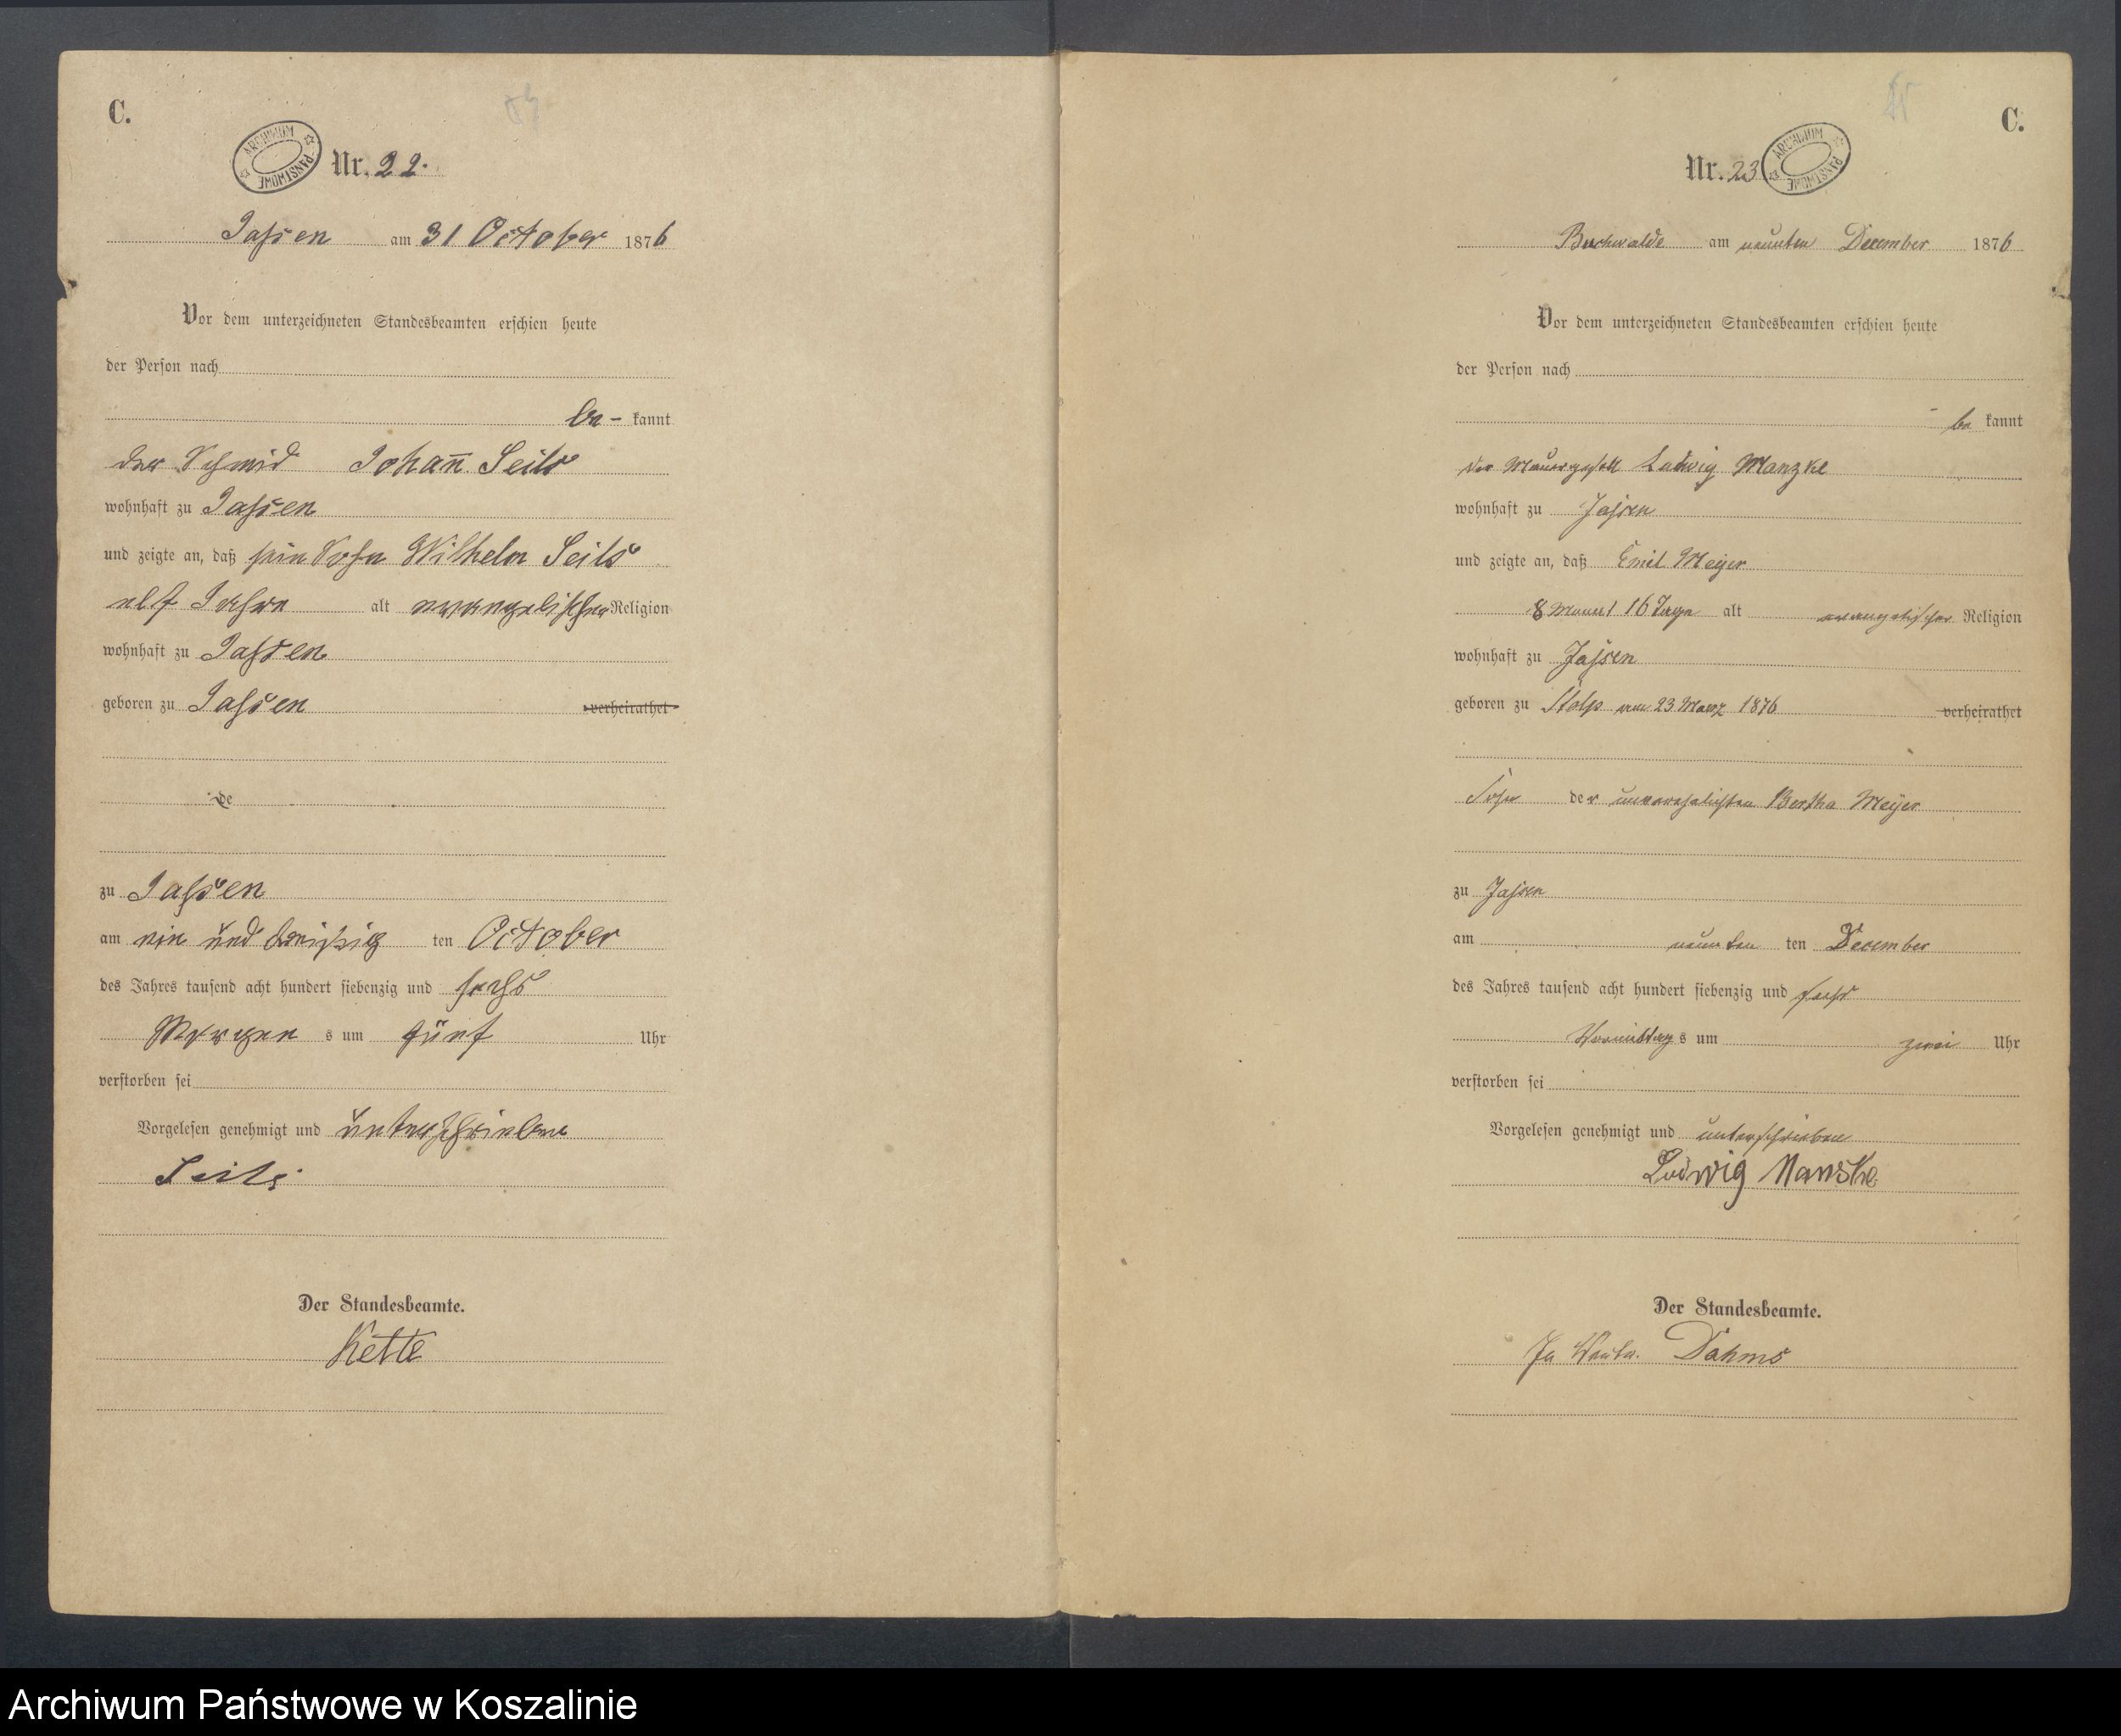 C.
ARCHIWUM PAŃSTWOWE
Nr. 22.
Jassen am 31 October 1876
Vor dem unterzeichneten Standesbeamten erschien heute
der Person nach
be- kannt
der Schmid Johan̄ Seils
wohnhaft zu Jassen
und zeigte an, daß sein Sohn Wilhelm Seils
elf Jahre alt evangelischer Religion
wohnhaft zu Jassen
geboren zu Jassen verheirathet
de
zu Jassen
am ein und dreißig ten October
des Jahres tausend acht hundert siebenzig und sechs
Morgen s um fünf Uhr
verstorben sei
Vorgelesen genehmigt und unterschrieben
Seils
Der Standesbeamte.
Kette
C.
Nr. 23
ARCHIWUM PAŃSTWOWE
Buchwalde am neunten December 1876
Vor dem unterzeichneten Standesbeamten erschien heute
der Person nach
be kannt
der Mauergesell Ludwig Manzke
wohnhaft zu Jassen
und zeigte an, daß Emil Meyer
8 Monat 16 Tage alt evangelischer Religion
wohnhaft zu Jassen
geboren zu Stolp am 23 März 1876 verheirathet
Sohn der unverehelichten Bertha Meyer
zu Jassen
am neunten ten December
des Jahres tausend acht hundert siebenzig und sechs
Vormittag s um zwei Uhr
verstorben sei
Vorgelesen genehmigt und unterschrieben
Ludwig Manske
Der Standesbeamte.
In Vertr. Dahms
Archiwum Państwowe w Koszalinie